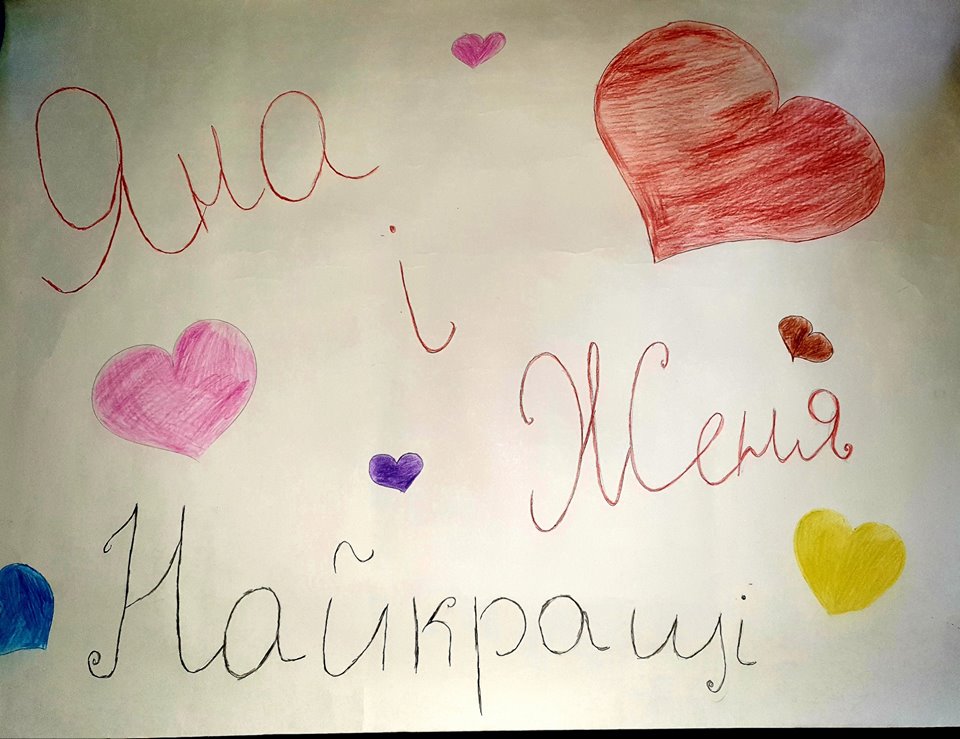 Яна
і
Женя
Найкращі